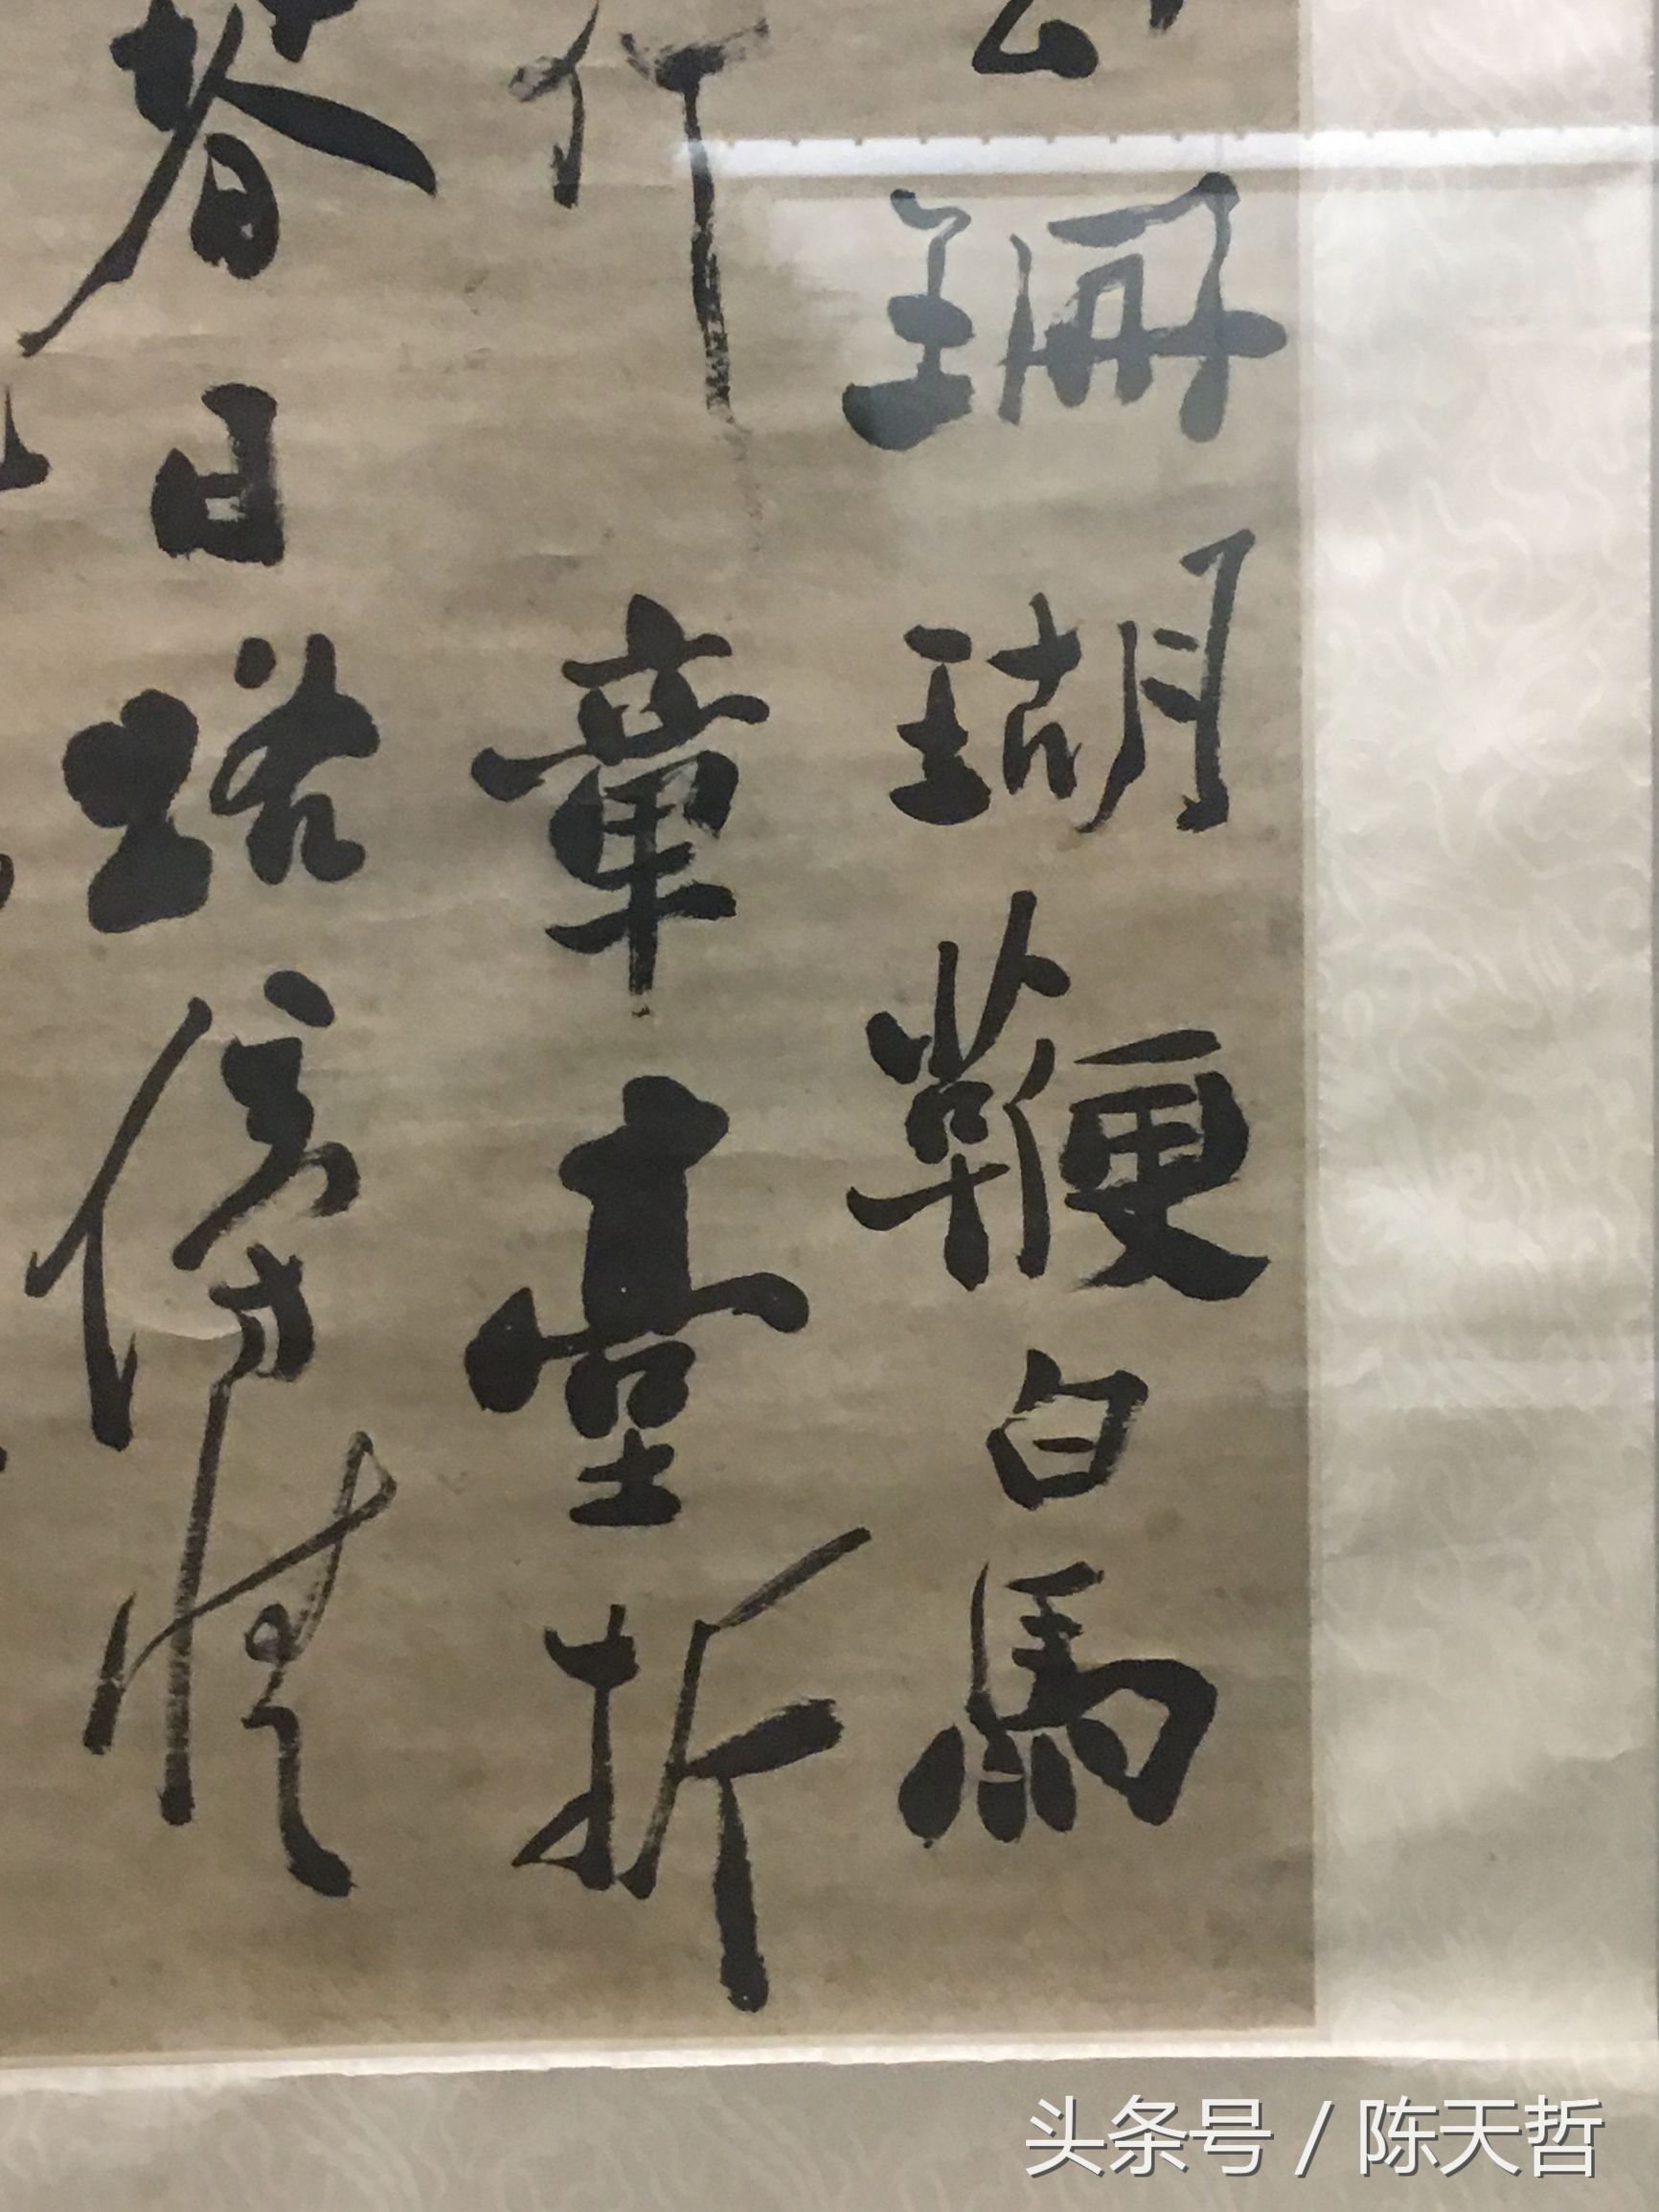 珊瑚鞭白馬
行章臺折
春日路傍情
头条号 / 陈天哲